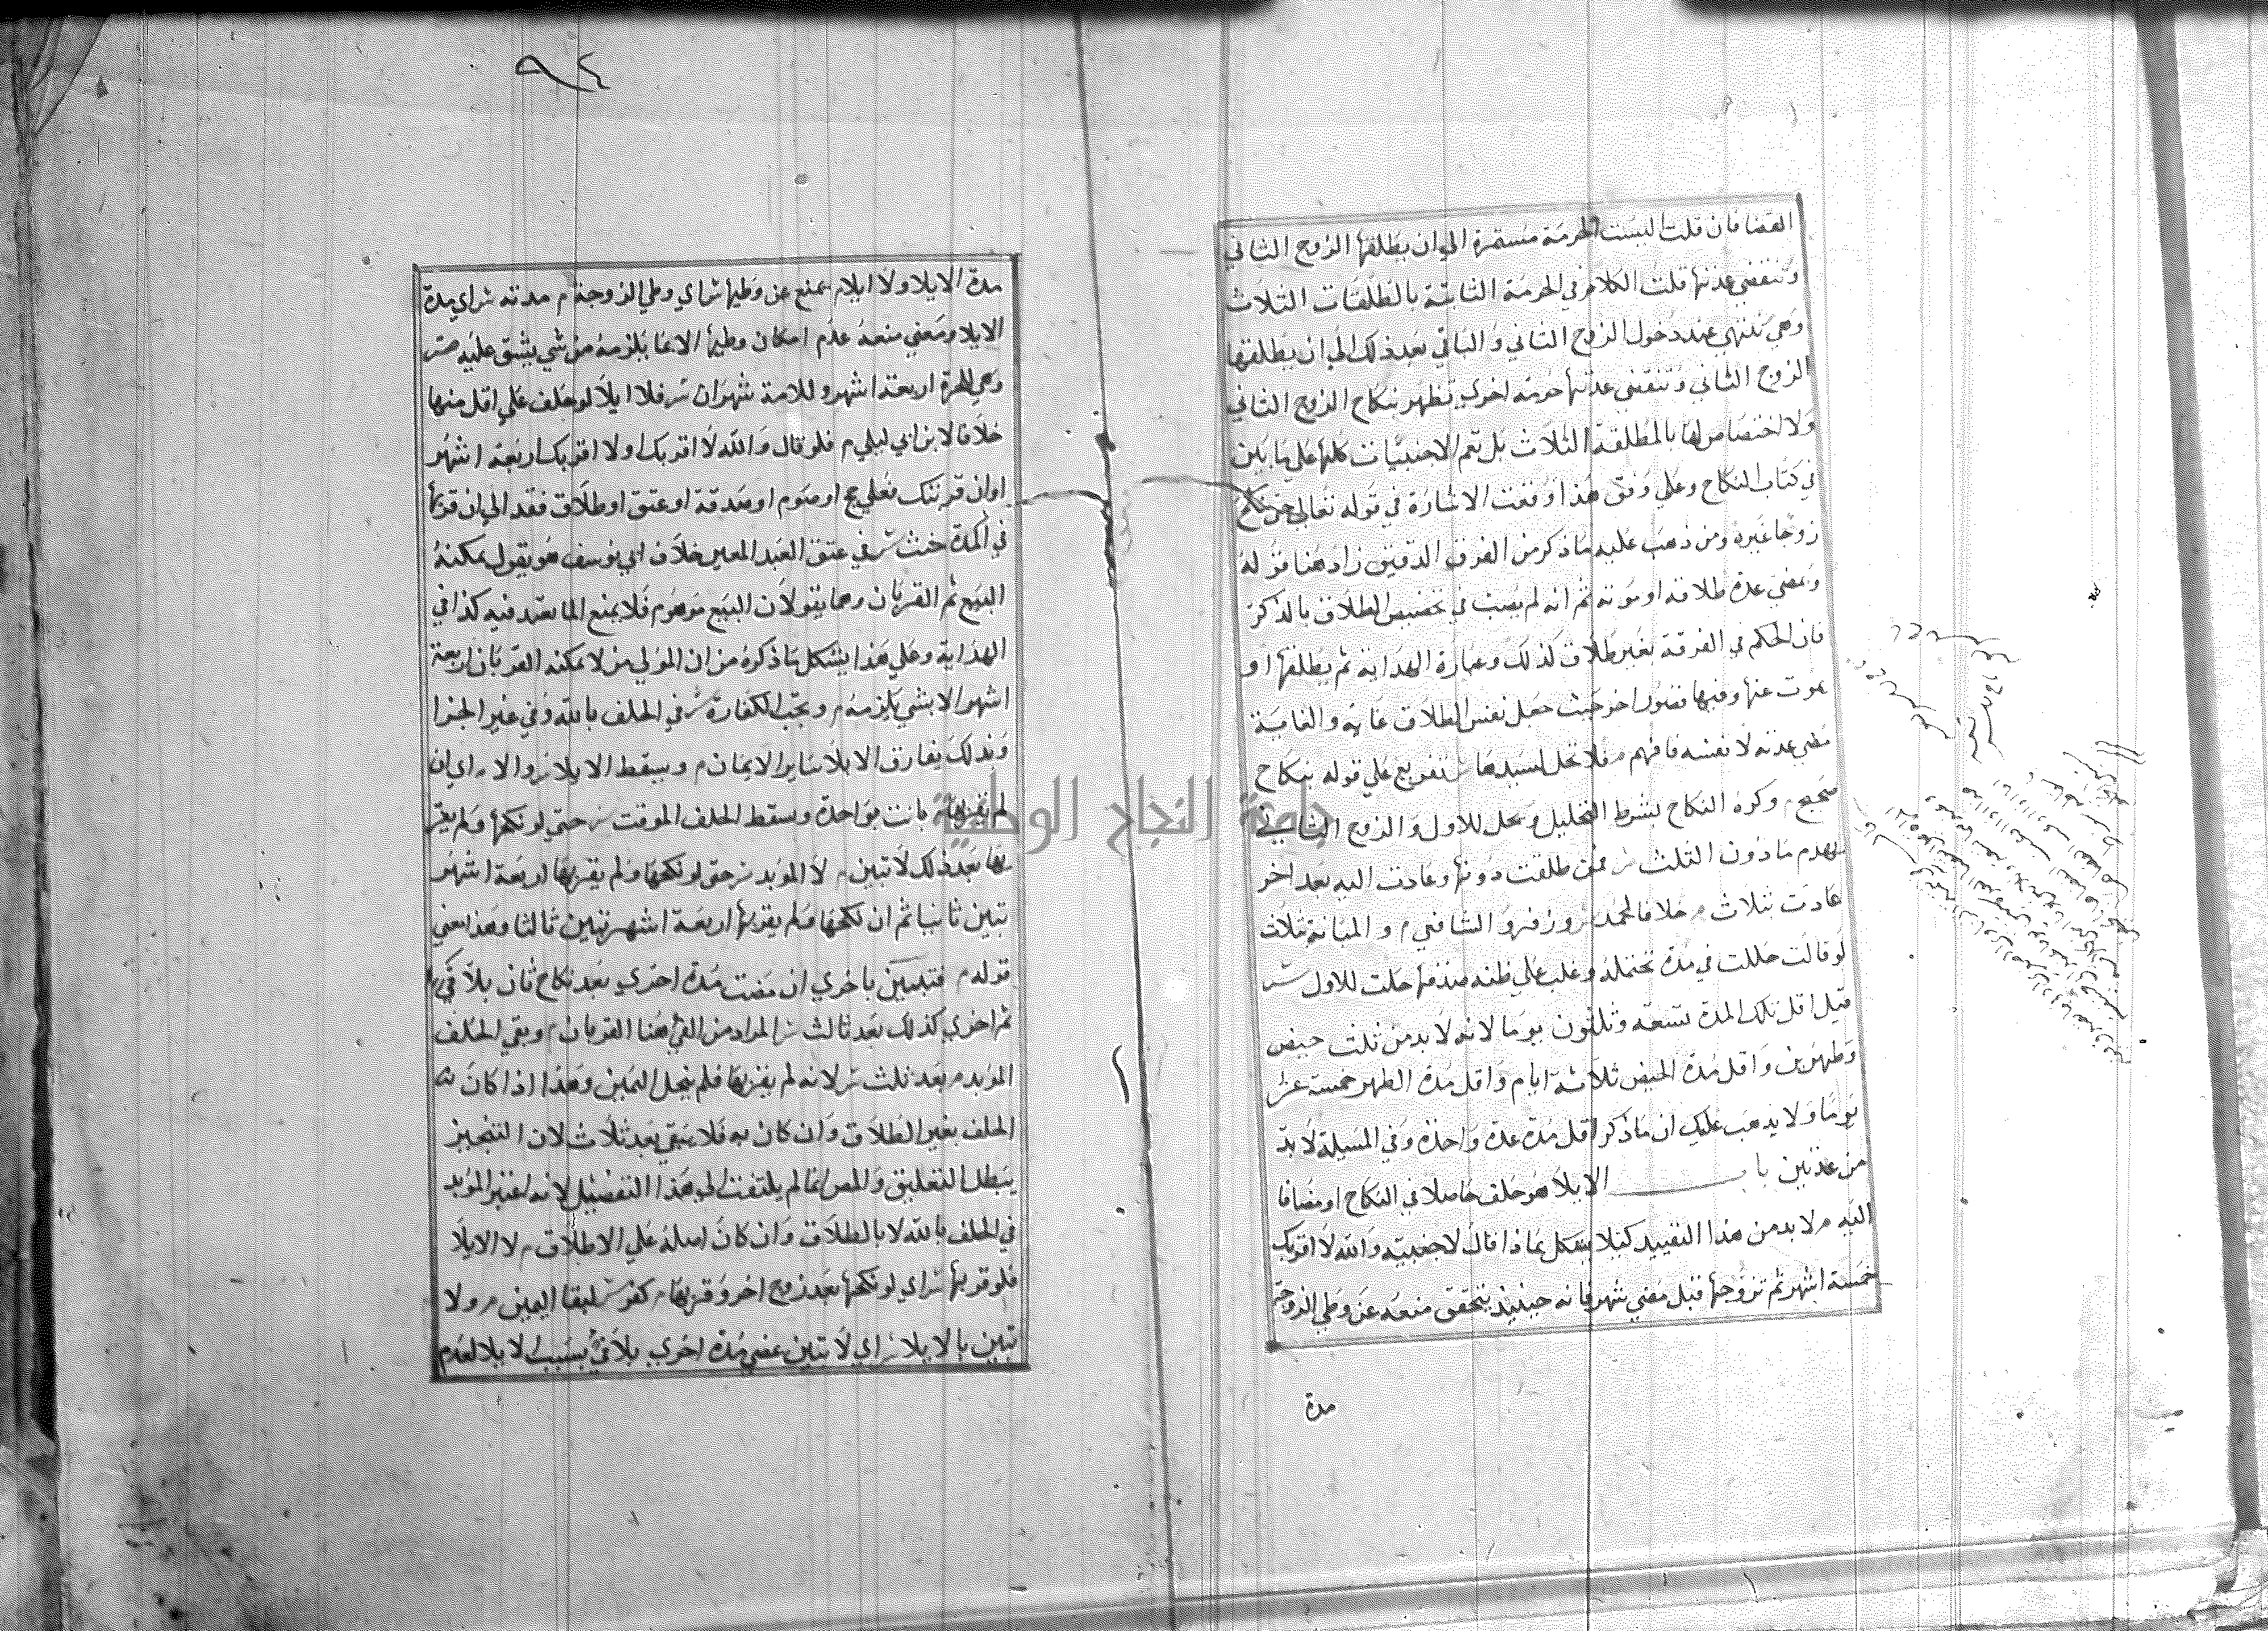 ٩٢
القضا فان قلت اليست الحرمة مستمرة الي ان يطلقها الزوج الثاني
وتنقضي عدتها قلت الكلام في الحرمة الثابتة بالطلقات الثلاث
وهي تنتهي عند دخول الزوج الثاني والباقي بعد ذلك الي ان يطلقها
الزوج الثاني وتنقضي عدتها حرمة اخري تظهر بنكاح الزوج الثاني
ولا اختصاص لها بالمطلقة الثلاث بل تعم الاجنبيات كلها علي ما بين
في كتاب النكاح وعلي وفق هذا وقعت الاشارة في قوله تعالي حتي تنكح
زوجا غيره ومن ذهب عليه ما ذكر من الفرق الدقيق زاد هنا قوله
وبمضي عدة طلاقه او موته ثم انه لم يصب في تخصيص الطلاق بالذكر
فان الحكم في الفرقة بغير طلاق كذلك وعبارة الهداية ثم يطلقها او
يموت عنها وفيها قصور اخر حيث جعل نفس الطلاق غاية والغاية
مضي عدته لا نفسه فافهم م فلا تحل لسيدها ش تفريع علي قوله بنكاح
صحيح م وكره النكاح بشرط التحليل وتحل للاول والزوج الثاني
يهدم ما دون الثلث ش فمن طلقت دونها وعادت اليه بعد اخر
عادت بثلاث م خلافا لمحمد ش وزفر والشافعي م والمبانة بثلاث
لو قالت حللت في مدة تحتمله وغلب علي ظنه صدقها حلت للاول ش
قيل اقل تلك المدة تسعة وثلثون يوما لانه لا بد من ثلث حيض
وطهرين واقل مدة الحيض ثلاثة ايام واقل مدة الطهر خمسة عشر
يوما ولا يذهب عليك ان ما ذكر اقل مدة عدة واحدة وفي المسيلة لا بد
من عدتين باب الايلا هو حلف حاصلا في النكاح او مضافا
اليه م لا بد من هذا التقييد كيلا يشكل بما اذا قال لاجنبية والله لا اقربك
خمسة اشهر ثم تزوجها قبل مضي شهر فانه حينيذ يتحقق منعه عن وطي الزوجة
مدة
مدة الايلا ولا ايلا م يمنع عن وطيها ش اي وطي الزوجة م مدته ش اي مدة
الايلا ومعني منعه عدم امكان وطيها الا بما يلزمه من شي يشق عليه م
وهي للحرة اربعة اشهر وللامة شهران ش فلا ايلا لو حلف علي اقل منها
خلافا لابن ابي ليلي م فلو قال والله لا اقربك او لا اقربك اربعة اشهر
او ان قربتك فعلي حج او صوم او صدقة او عتق او طلاق فقد الي ان قربها
في المدة حنث ش في عتق العبد المعين خلاف ابي يوسف هو يقول يمكنه
البيع ثم القربان وهما يقولان البيع موهوم فلا يمنع المانعية فيه كذا في
الهداية وعلي هذا يشكل ما ذكره من ان المولي من لا يمكنه القربان اربعة
اشهر الا بشي يلزمه م وتجب الكفارة ش في الحلف بالله وفي غير الجزا
وبذلك يفارق الايلا ساير الايمان م ويسقط الايلا ش والا م اي ان
لم يقربها م بانت بواحدة وسقط الحلف الموقت ش حتي لو نكحها ولم يقر
بها بعد ذلك لا تبين م لا المؤبد ش حتي لو نكحها ولم يقربها اربعة اشهر
تبين ثانيا ثم ان نكحها ولم يقربها اربعة اشهر تبين ثالثا وهذا معني
قوله م فتبين باخري ان مضت مدة اخري بعد نكاح ثان بلا في
ثم اخري كذلك بعد ثالث ش المراد من الفي هنا القربان م وبقي الحلف
المؤبد م بعد ثلث ش لانه لم يقربها فلم ينحل اليمين وهذا اذا كان
الحلف بغير الطلاق وان كان به فلا يبقي بعد ثلاث لان التنجيز
يبطل التعليق والمص انما لم يلتفت الي هذا التفصيل لانه اعتبر المؤبد
في الحلف بالله لا بالطلاق وان كان اصله علي الاطلاق م لا الايلا
فلو قربها ش اي لو نكحها بعد زوج اخر وقربها م كفر ش لبقا اليمين م ولا
تبين بالايلا ش اي لا تبين بمضي مدة اخري بلا في بسبب الايلا لعدم
جامعة النجاح الوطنية